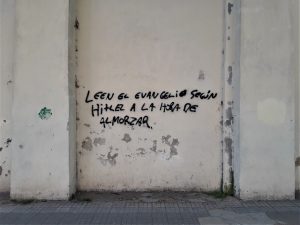 LEEN EL EVANGELIO SEGÚN
HITLEL A LA HORA DE
ALMORZAR.